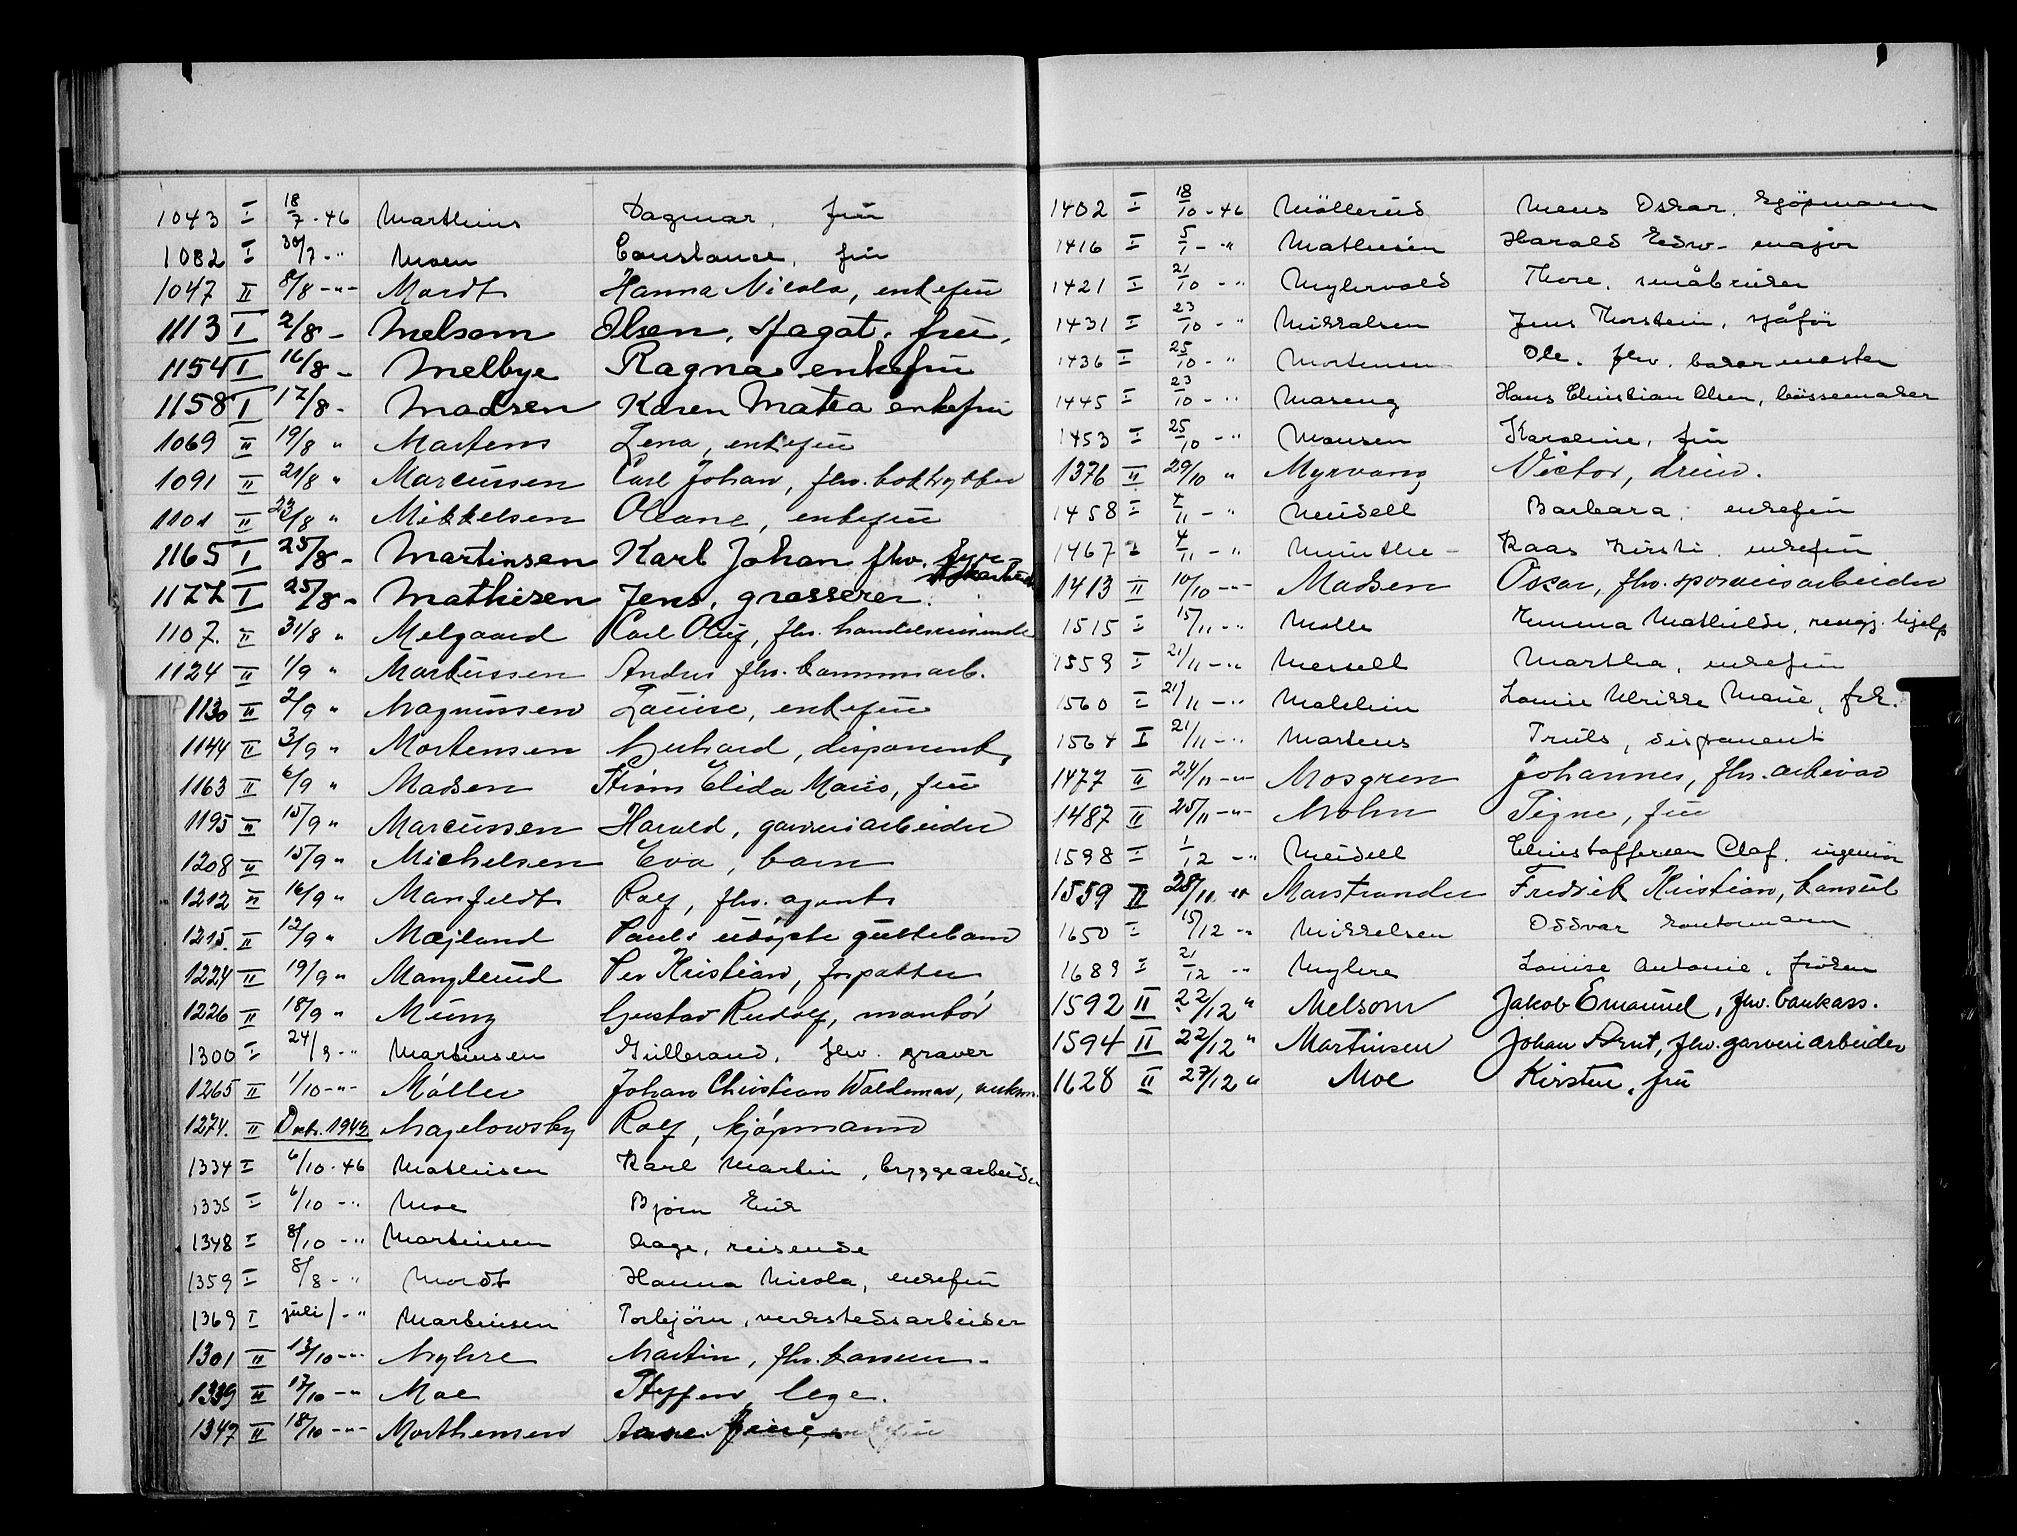 1043 I 18/7-46 Marthins Dagmar, frü
1082 I 30/7-" Moen Constance, frü
1047 II 8/8-"- Mordt Hanna Nicola, enkefrü
1113 I 2/8- Melsom Olsen, Hagat. frü,
1154 I 16/8- Melbye Ragna enkefrü
1158 I 17/8- Madsen Karen Matea enkefrü
1069 II 19/8 " Martens Lena, enkefrü
1091 II 21/8 " Marcüssen Carl Johan, fhv. boktrykker
1101 II 23/8 " Mikkelsen Oleane, enkefrü
1165 I 25/8- Martinsen Karl Johan fhv. fyr-
1177 I 25/8- Mathisen Jens, grosserer.
1107. II 31/8 " Melgaard Carl Olüf, fhv. handelsreisende
1124 II 1/9 " Markussen Andres fhv. kommarb.
1130 II 2/9 " Magnüssen Loüise, enkefrü
1144 II 3/9 " Mortensen Gerhard, disponent
1163 II 6/9 " Madsen Strøm Elida Marie, frü
1195 II 15/9 " Marcüssen Harald, garveriarbeider
1208 II 15/9 " Michelsen Eva, barn
1212 II 16/9 " Manfeldt Rolf, fhv. agent
1215. II 12/9 " Mæjland Pauls udöpte güttebarn
1224 II 19/9 " Manglerud Per Kristian, forpakter
1226 II 18/9 " Münz Gustav Rudolf, montör
1300 I 24/9-" Martinsen Gulbrand, fhv. graver
1265 II 1/10-"- Möller Johan Christian Waldemar, verkm.
1274. II Dec. 1943 Magelowsky Rolf, kjöpmann
1334 I 6/10-46 Mathisen Karl Martin, bryggearbeider
1335 I 6/10-" Moe Bjørn Eirik
1348 I 8/10-" Martinsen Aage, reisende
1359 I 8/8-" Mordt Hanna Nicola, enkefrü
1369 I juli/-" Martinsen Torbjörn, verkstedsarbeider
1301 II 13/10-"- Myhre Martin, fhv. komm.
1339 II 17/10-" Moe Steffen, lege.
1347 II 18/10-"- Morthensen Anne enkefrü
1402 I 18/10-46 Möllerud Mens Oskar, kjöpmann
1416 I 5/1-" Mathisen Harald Edw- major
1421 I 21/10-" Myhrvold Thore, småbruker
1431 I 23/10-" Mikkalsen Jens Thorstein, sjåför
1436 I 25/10-" Mortensen Ole. fhv. bakermester
1445 I 23/10-" Moseng Hans Christian Olsen, bössemaker
1453 I 25/10-" Monsen Karoline, frü
1376 II 29/10 " Myrvang Victor, dreier.
1458 I 4/11-" Meidell Barbara, enkefrü
1467 4/11-" Munthe- Kaas Kirsti, enkefrü
1413 II 10/10-"- Madsen Oscar, fhv. sporveisarbeider
1515 I 15/11-" Molle Emma Mathilde, rengj. hjelp
1559 I 21/11-" Messell Martha, enkefrü
1560 I 21/11-" Malchin Louise Ulrikke Marie, frk.
1564 I 21/11-" Martens Truls, disponent
1477 II 24/11-"- Mosgren Johannes, fhv. arkivar
1487 II 25/11-"- Mohn Signe, frü
1598 I 1/12-" Meidell Christoffersen Olaf. ingeniör
1559 II 28/11 " Marstrander Fredrik Kristian, konsul
1650 I 15/12-" Mikkelsen Oddvar kontormann
1689 I 21/12-" Myhre Louise Antonie, fröken
1592 II 22/12 " Melsom Jakob Emanuel, fhv. bankass.
1594 II 22/12 " Martinsen Johan Arnt, fhv. garveriarbeider
1628 II 27/12 " Moe Kirsten, frü